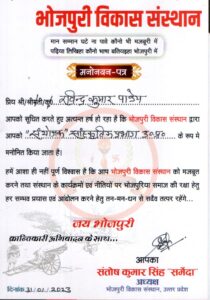 भोजपुरी विकास संस्थान
मान सम्मान घटे ना पावे कौनो भी मजबूरी में
पढ़िया लिखिहा कौनो भाषा बतियइहा भोजपुरी में
मनोनयन-पत्र
प्रिय श्री/श्रीमती/कु० रविन्द्र कुमार पाण्डेय
आपको सूचित करते हुए अत्यन्त हर्ष हो रहा है कि भोजपुरी विकास संस्थान द्वारा
आपको "संयोजक" सांस्कृतिक प्रभाग उ०प्र० के रूप में
मनोनित किया जाता है।
हमें आशा ही नहीं पूर्ण विश्वास है कि आप भोजपुरी विकास संस्थान को मजबूत
करने तथा संस्थान के कार्यक्रमों एवं नीतियों पर भोजपुरिया समाज की रक्षा हेतु
हर सम्भव प्रयास एवं आन्दोलन करते हेतु तन-मन-धन से सदैव तत्पर रहेंगे।
जय भोजपुरी
क्रान्तिकारी अभिवादन के साथ...
आपका
संतोष कुमार सिंह "सनेदा"
अध्यक्ष
दिनांक 31/01/2023
भोजपुरी विकास संस्थान, उत्तर प्रदेश